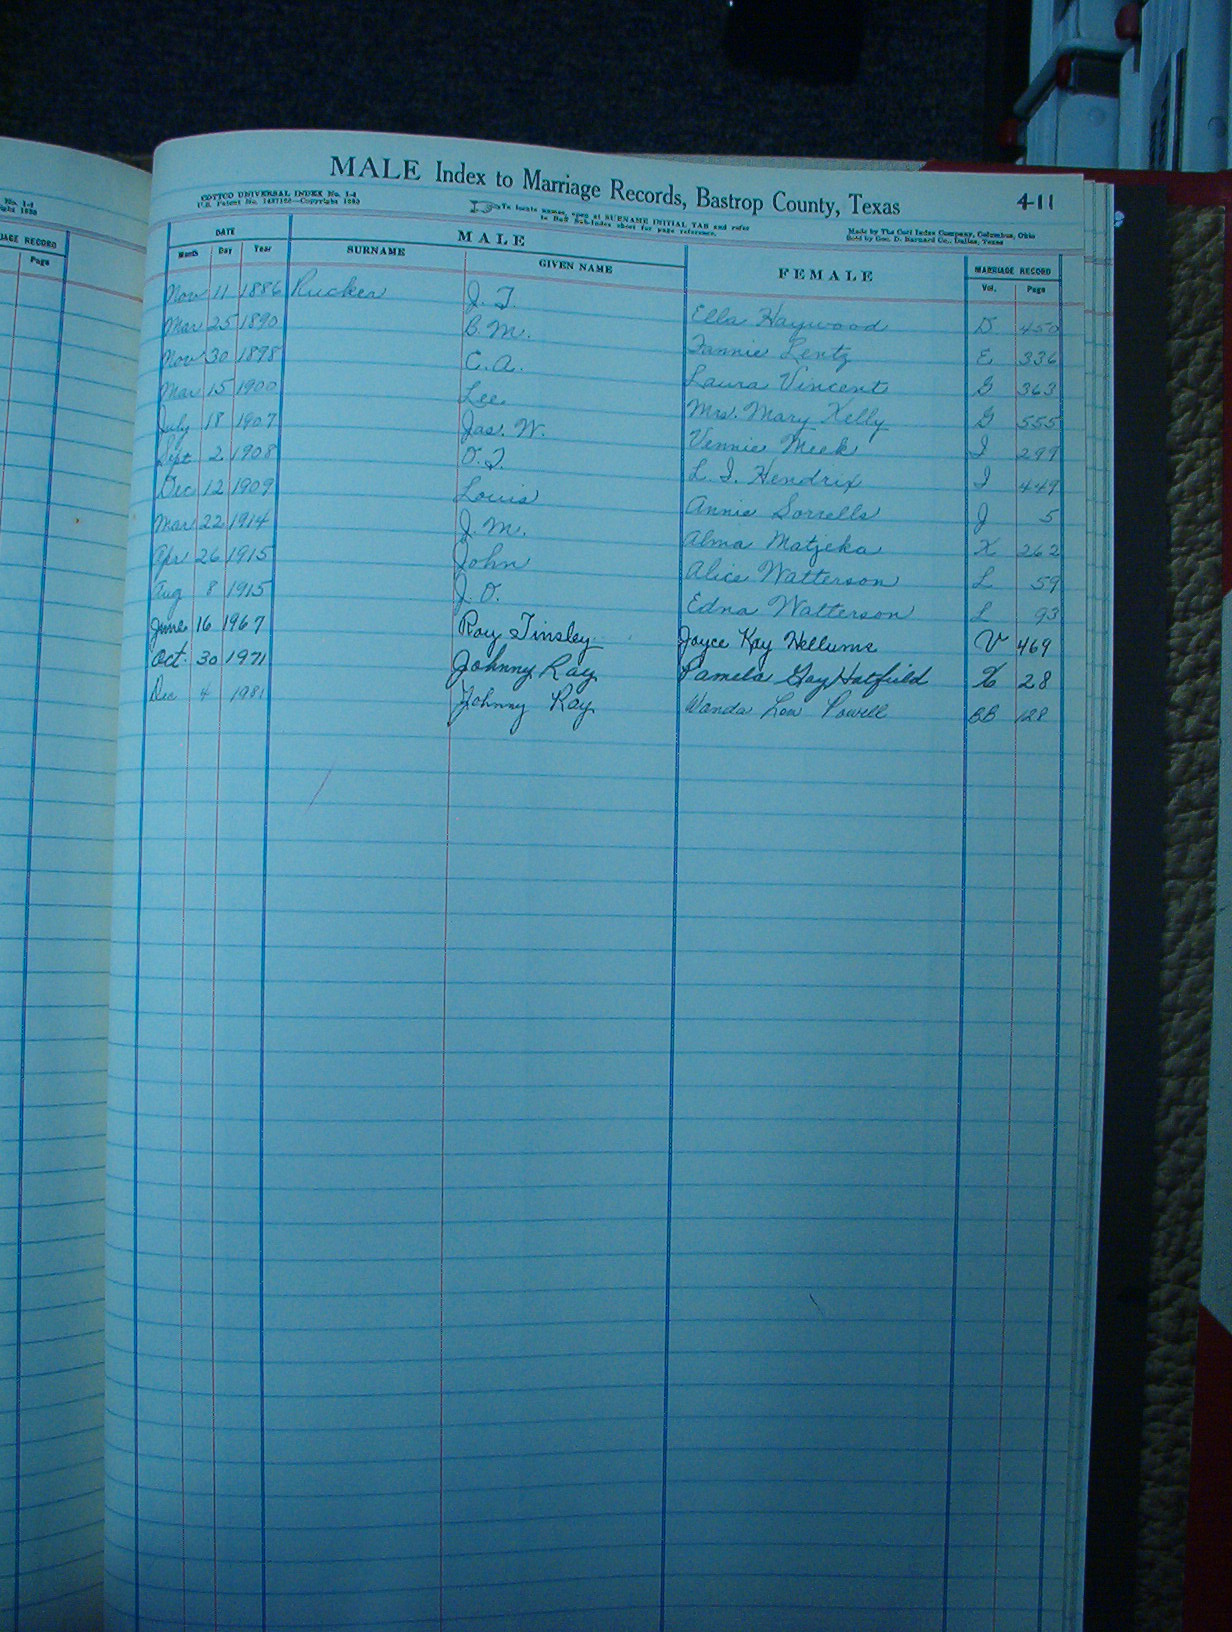 No. 1-4
MALE Index to Marriage Records, Bastrop County, Texas 411
COTTCO UNIVERSAL INDEX No. 1-4
U.S. Patent No. 1437122—Copyright 1880
To locate names, open at SURNAME INITIAL TAB and refer
to Sub-Index sheet for page reference.
Made by The Cott Index Company, Columbus, Ohio
Sold by Geo. D. Barnard Co., Dallas, Texas
RIAGE RECORD
Page
DATE MALE FEMALE MARRIAGE RECORD
Month Day Year SURNAME GIVEN NAME Vol. Page
Nov 11 1886 Rucker J. T. Ella Haywood D 450
Mar 25 1890 B. M. Fannie Lentz E 336
Nov 30 1898 C. A. Laura Vincent G 363
Mar 15 1900 Lee Mrs. Mary Kelly G 555
July 18 1907 Jas. W. Vennie Meek I 299
Sept 2 1908 O. T. L. I. Hendrix I 449
Dec 12 1909 Louis Annie Sorrells J 5
Mar 22 1914 J. M. Alma Matjeka K 262
Apr 26 1915 John Alice Watterson L 59
Aug 8 1915 J. O. Edna Watterson L 93
June 16 1967 Roy Tinsley Joyce Kay Hellums V 469
Oct. 30 1971 Johnny Ray Pamela Gay Hatfield X 28
Dec 4 1981 Johnny Ray Wanda Lou Powell BB 128